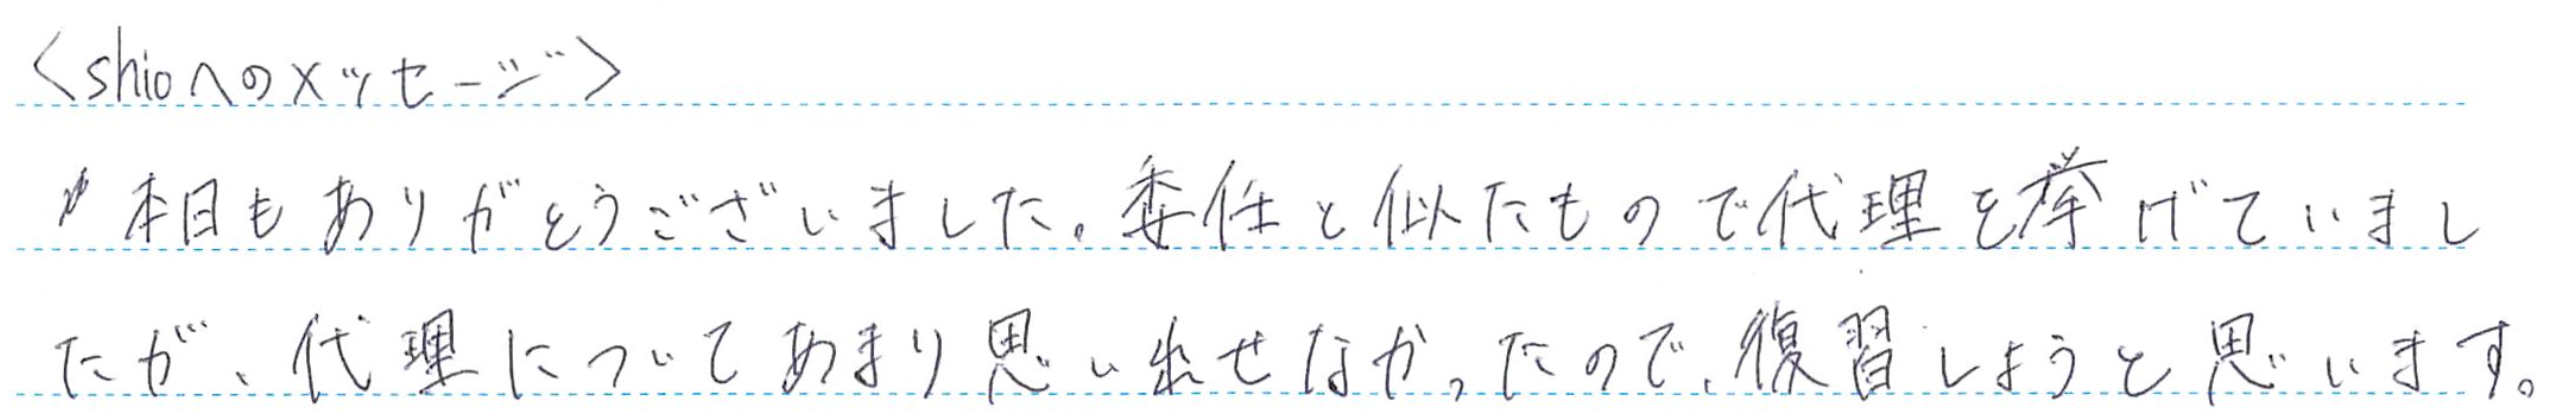 <shioへのメッセージ>
本日もありがとうございました。委任と似たもので代理を挙げていまし
たが、代理についてあまり思い出せなかったので、復習しようと思います。